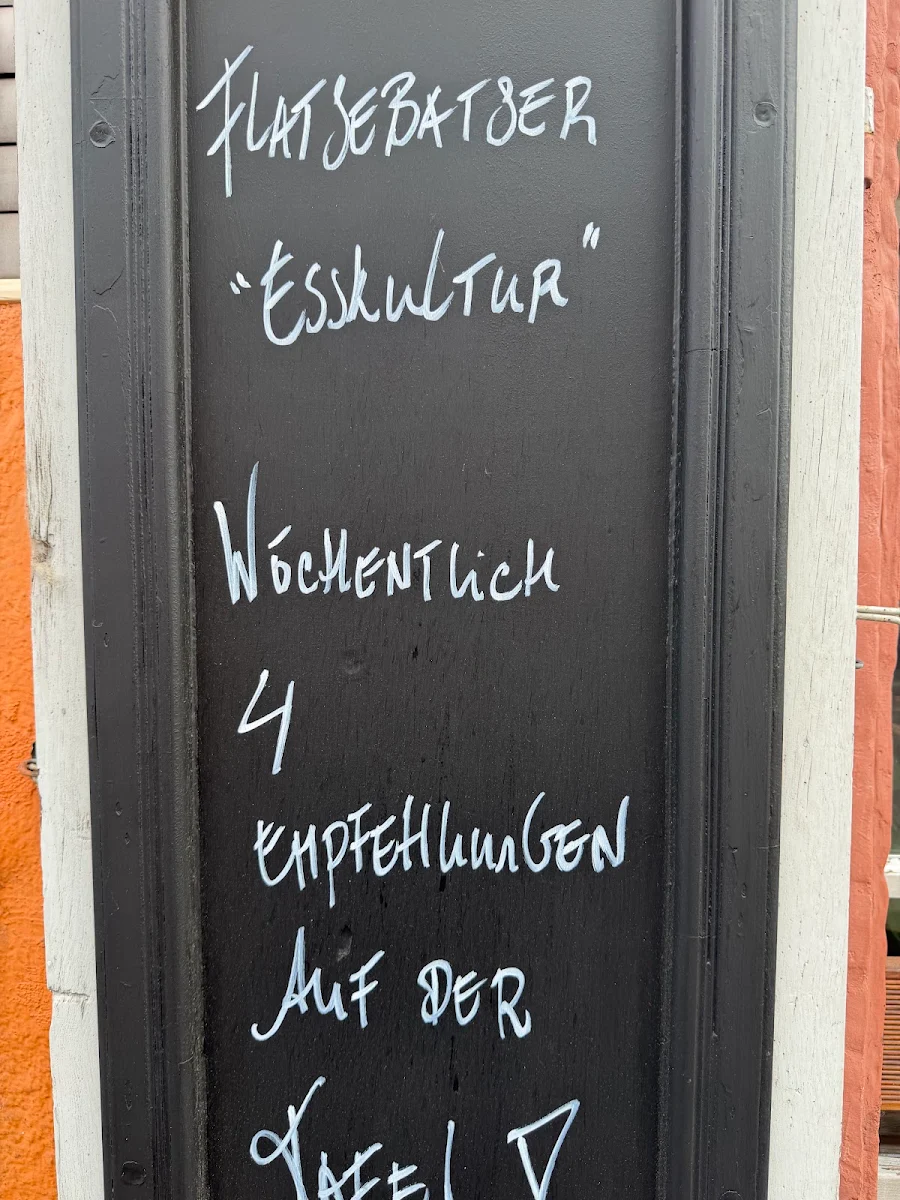 FLATSEBATSER
"ESSKULTUR"
WÓCHENTLICH
4
EMPFEHLUNGEN
AUF DER
TAFEL